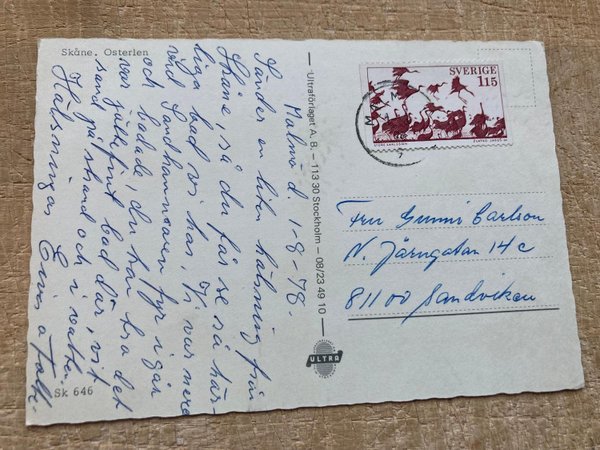 Skåne. Österlen
Malmö d. 1-8-78.
Sänder en liten hälsning från
Skåne, så du får se så här-
liga bad vi har. Vi var nere
vid Sandhammaren fyr igår
och badade, du kan tro det
var jättefint bad där, vit
sand på strand och i vattn.
Hälsningar Einar o
Sk 646
Ultraförlaget A. B. — 113 30 Stockholm — 08/23 49 10
ULTRA
SVERIGE
115
Fru Gunni Carlson
N. Järngatan 14 c
81100 Sandviken